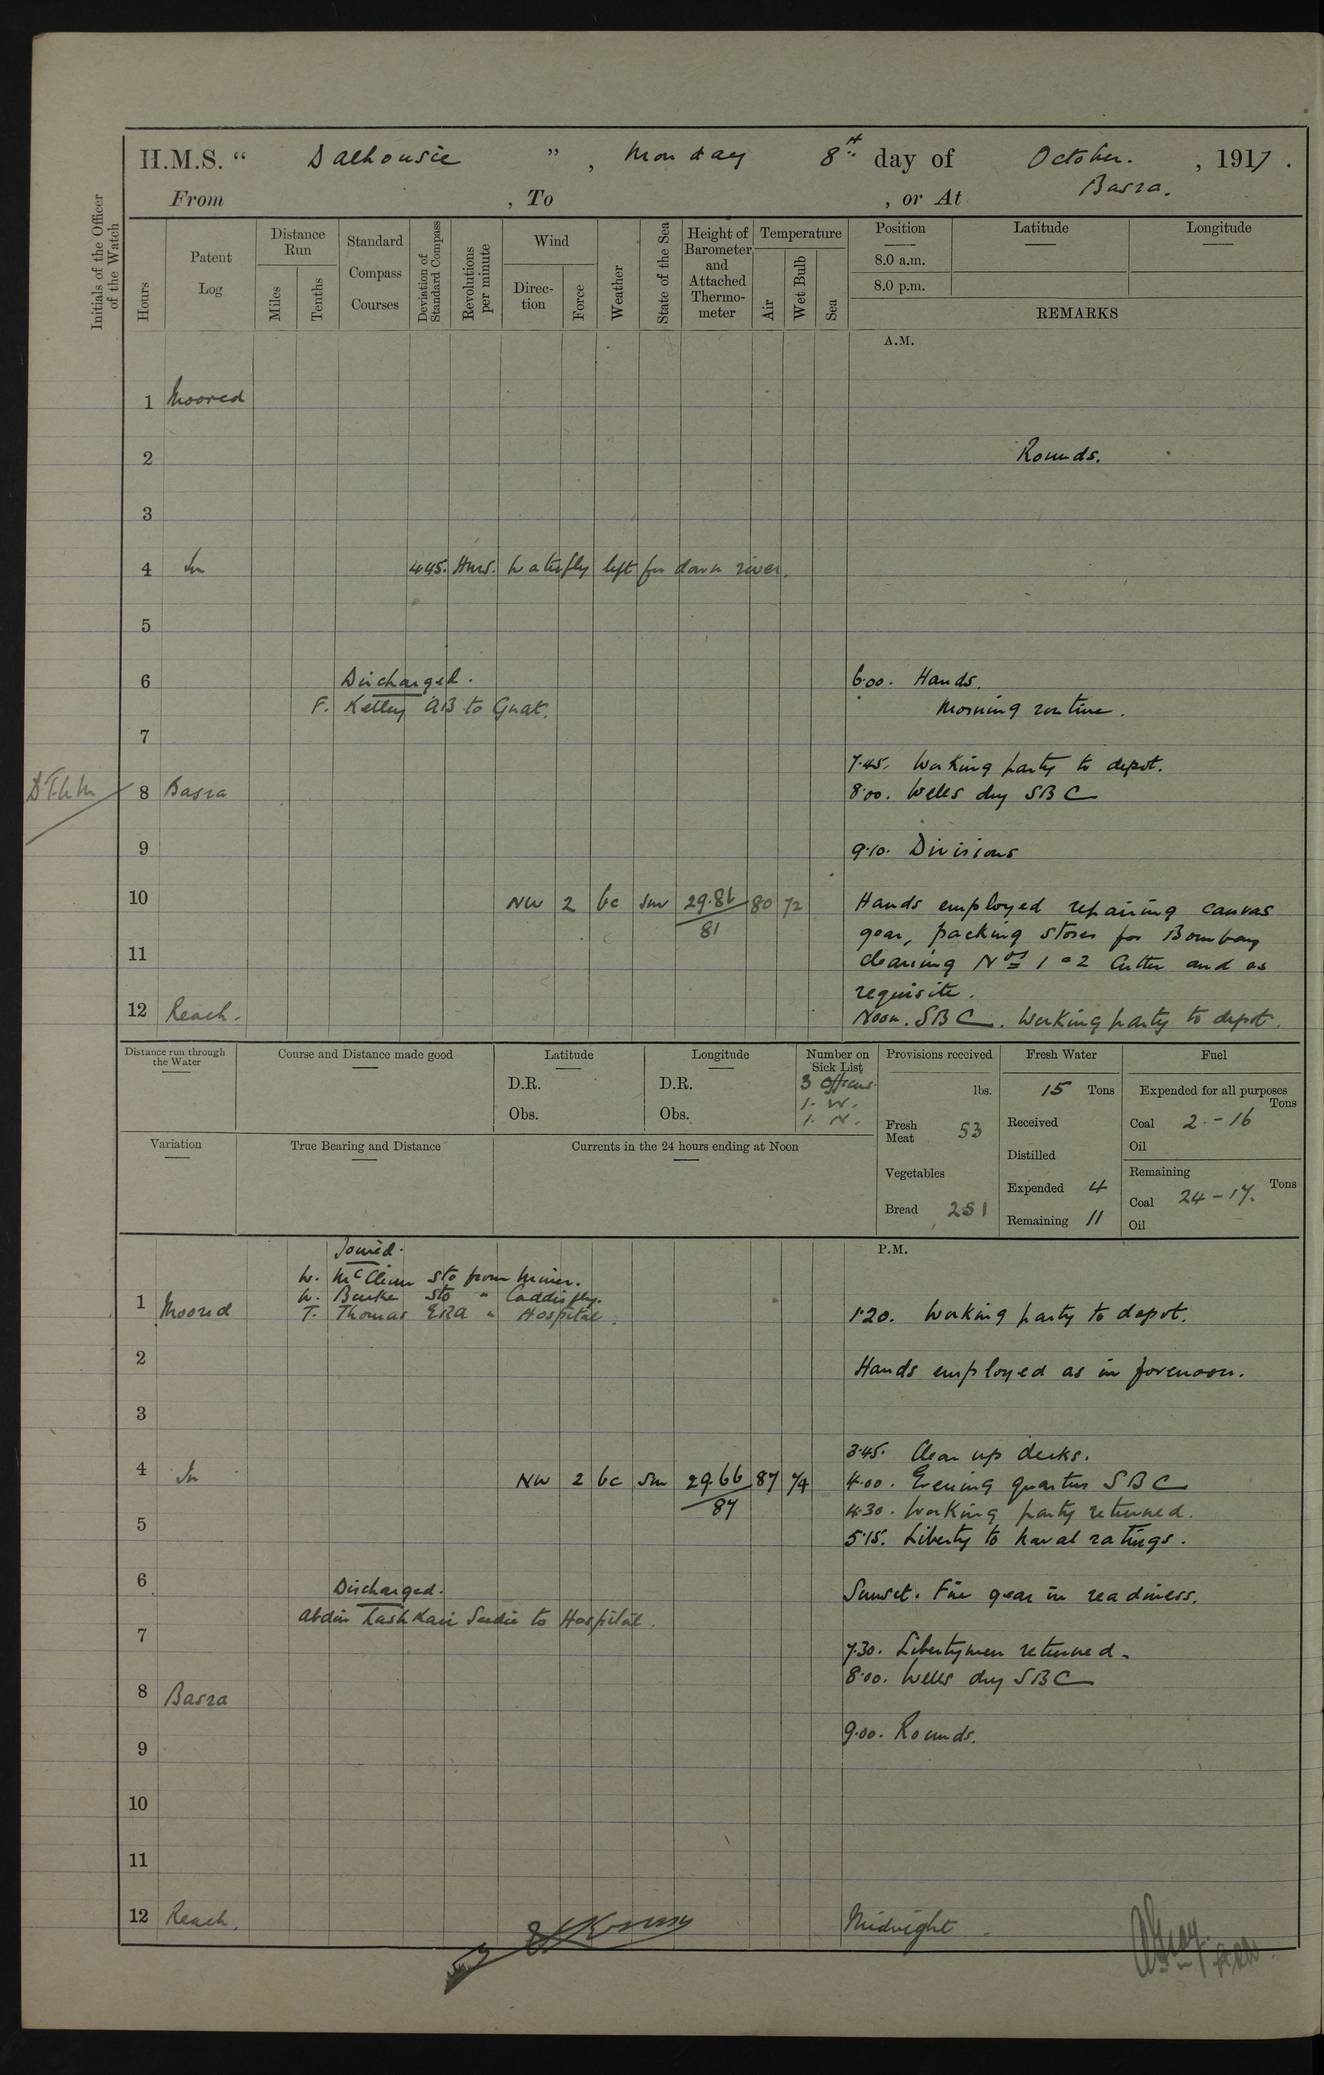 H.M.S. “ Dalhousie ” , Monday 8th day of October. , 1917 .
From , To , or At Basra.
Initials of the Officer of the Watch
Hours
Patent Log
Distance Run
Miles
Tenths
Standard Compass Courses
Deviation of Standard Compass
Revolutions per minute
Wind
Direc-tion
Force
Weather
State of the Sea
Height of Barometer and Attached Thermo-meter
Temperature
Air
Wet Bulb
Sea
Position
8.0 a.m.
8.0 p.m.
Latitude
Longitude
REMARKS
A.M.
1 Moored
2 Rounds.
3
4 In 4.45. H.M.S. Waterfly left for down river.
5
6 Discharged. 6.00. Hands.
F. Kelley AB to Gnat. Morning routine.
7
7.45. Working party to depot.
8 Basra 8.00. Wells dry SBC
9 9.10. Divisions
10 NW 2 bc sm 29.86 80 72 Hands employed repairing canvas
81 gear, packing stores for Bombay
11 clearing Nos 1 & 2 Cutter and as
requisite.
12 Reach. Noon. SBC. Working party to depot.
Distance run through the Water
Course and Distance made good
Latitude
D.R.
Obs.
Longitude
D.R.
Obs.
Number on Sick List
3 Officers.
1. W.
1. N.
Provisions received
lbs.
Fresh Meat 53
Vegetables
Bread 251
Fresh Water
15 Tons
Received
Distilled
Expended 4
Remaining 11
Fuel
Expended for all purposes
Tons
Coal 2.-16
Oil
Remaining
Tons
Coal 24-17.
Oil
Variation
True Bearing and Distance
Currents in the 24 hours ending at Noon
P.M.
Joined.
W. Sto from Miner.
W. Burke Sto " Caddisfly.
1 Moored T. Thomas ERA " Hospital. 1.20. Working party to depot.
2 Hands employed as in forenoon.
3
3.45. Clear up decks.
4 In NW 2 bc sm 29.66 87 74 4.00. Evening quarters SBC
87 4.30. Working party returned.
5 5.15. Liberty to Naval ratings.
6 Discharged. Sunset. Fire gear in readiness.
Abdin to Hospital.
7
7.30. Libertymen returned.
8 Basra 8.00. Wells dry SBC
9 9.00. Rounds.
10
11
12 Reach. Midnight